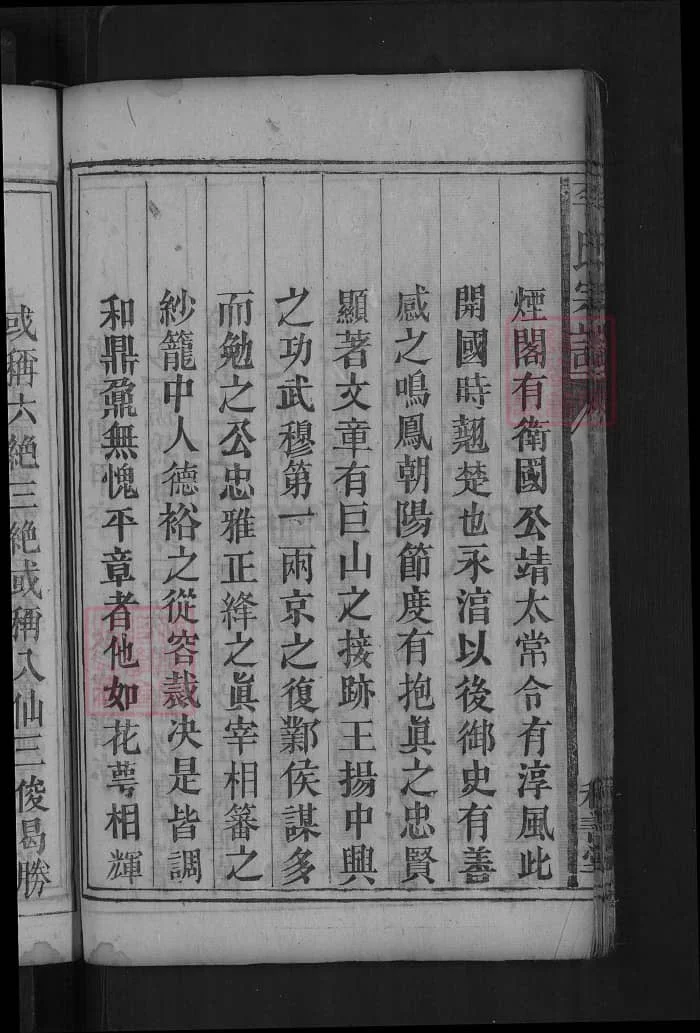 李氏宗譜
煙閣有衛國公靖太常令有淳風此
開國時翹楚也永淯以後御史有善
感之鳴鳳朝陽節度有抱真之忠賢
顯著文章有巨山之接跡王揚中興
之功武穆第一兩京之復鄴侯謀多
而勉之公忠雅正絳之眞宰相籓之
紗籠中人德裕之從容裁决是皆調
和鼎鼐無愧平章者他如花萼相輝
或稱六絶三絶或稱八仙三俊曷勝